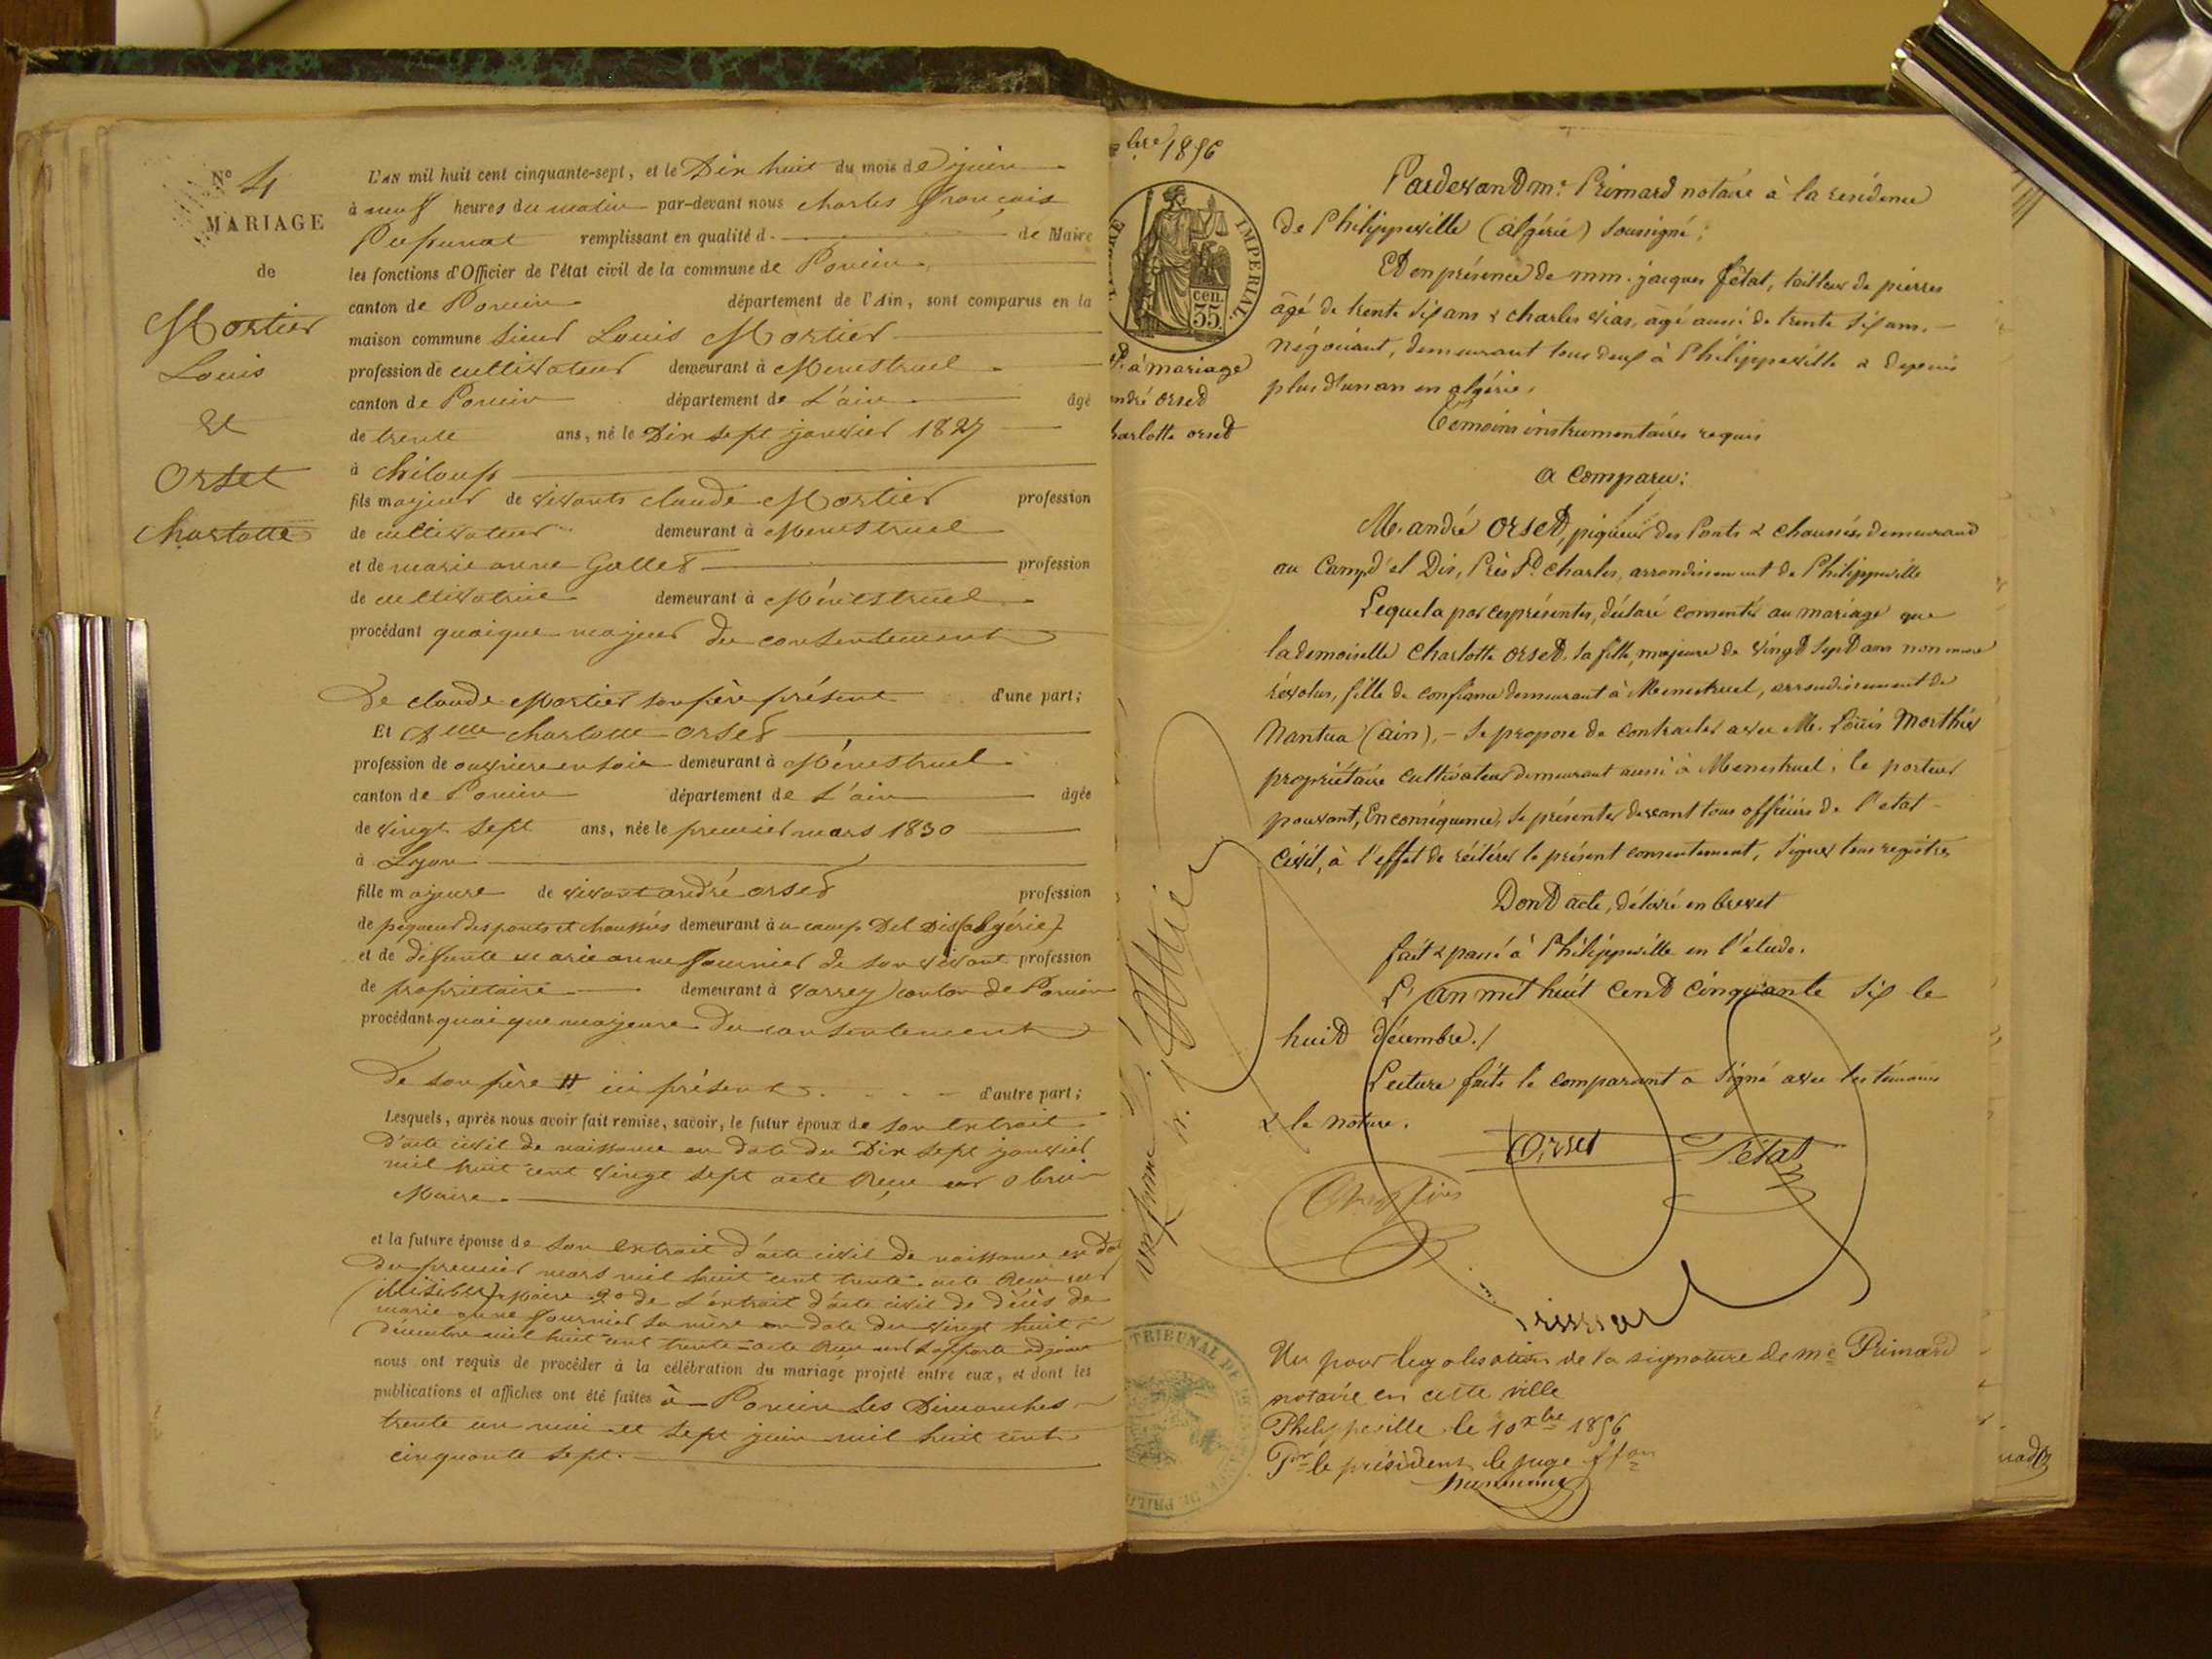 N° 4
MARIAGE
de
Mortier
Louis
Et
Orset
Charlotte
L'AN mil huit cent cinquante-sept, et le Dix huit du mois de juin
à neuf heures du matin par-devant nous charles françois
remplissant en qualité d de Maire
les fonctions d'Officier de l'état civil de la commune de Poncin
canton de Poncin département de l'Ain, sont comparus en la
maison commune Sieur Louis Mortier
profession de cultivateur demeurant à Menestruel
canton de Poncin département de L'ain âgé
de trente ans, né le Dix sept janvier 1827
à chiloup
fils majeur de vivants claude Mortier profession
de cultivateur demeurant à Menestruel
et de marie anne Gallet profession
de cultivatrice demeurant à Ménestruel
procédant quoique majeur du consentement
De claude Mortier son père présent d'une part;
Et Dlle charlotte orset
profession de ouvriere en soie demeurant à Ménestruel
canton de Poncin département de L'ain âgée
de vingt sept ans, née le premier mars 1830
à Lyon
fille majeure de vivant andré orset profession
de piqueur des ponts et chaussées demeurant à u camp Del Dis (algérie)
et de défunte marie anne fournier de son vivant profession
de propriétaire demeurant à varrey canton de Poncin
procédant quoique majeure du consentement
De son père # ici présent d'autre part;
Lesquels, après nous avoir fait remise, savoir, le futur époux de son extrait
d'acte civil de naissance en date du Dix sept janvier
mil huit cent vingt sept acte Reçu
Maire
et la future épouse de son extrait d'acte civil de naissance en dat
du premier mars mil huit cent trente acte Reçu
(illisible) Maire 2° de L'extrait d'acte civil de décès de
marie anne fournier sa mère en date du vingt huit
décembre mil huit cent trente acte Reçu adjoint
nous ont requis de procéder à la célébration du mariage projeté entre eux, et dont les
publications et affiches ont été faites à Poncin les Dimanches
trente un mai et sept juin mil huit cent
cinquante sept.
bre 1856
TIMBRE IMPERIAL
35 cen.
à mariage
ndré orset
harlotte orset
Pardevant me Primard notaire à la résidence
de Philippeville (algérie) soussigné;
Et en présence de mm. jacques fétat, tailleur de pierres
âgé de trente six ans & charles vias, âgé aussi de trente six ans,
négociant, demeurant tous deux à Philippeville & depuis
plus d'un an en algérie,
Témoins instrumentaires requis
a comparu:
M. andré orset, piqueur des Ponts & chaussées demeurant
au camp d'el Dis, Près St charles, arrondissement de Philippeville
Lequel a par ces présentes, déclaré consentir au mariage que
la demoiselle charlotte orset, sa fille, majeure de vingt sept ans non encore
révolus, fille de confiance demeurant à Menestruel, arrondissement de
Nantua (ain), se propose de contracter avec M. Louis Morthier
propriétaire cultivateur demeurant aussi à Menestruel; le porteur
pouvant, En conséquence, se présenter devant tous officiers de l'etat
civil, à l'effet de réitérer le présent consentement, signer tous registres
Dont acte, délivré en brevet
fait & passé à Philippeville en l'étude.
L'an mil huit cent cinquante six le
huit décembre.
Lecture faite le comparant a signé avec les témoins
& le notaire.
Orset Fétat
Primard
TRIBUNAL DE
Vu pour légalisation de la signature de me Primard
notaire en cette ville
Philippeville le 10 xbre 1856
Pr le président le juge ffon